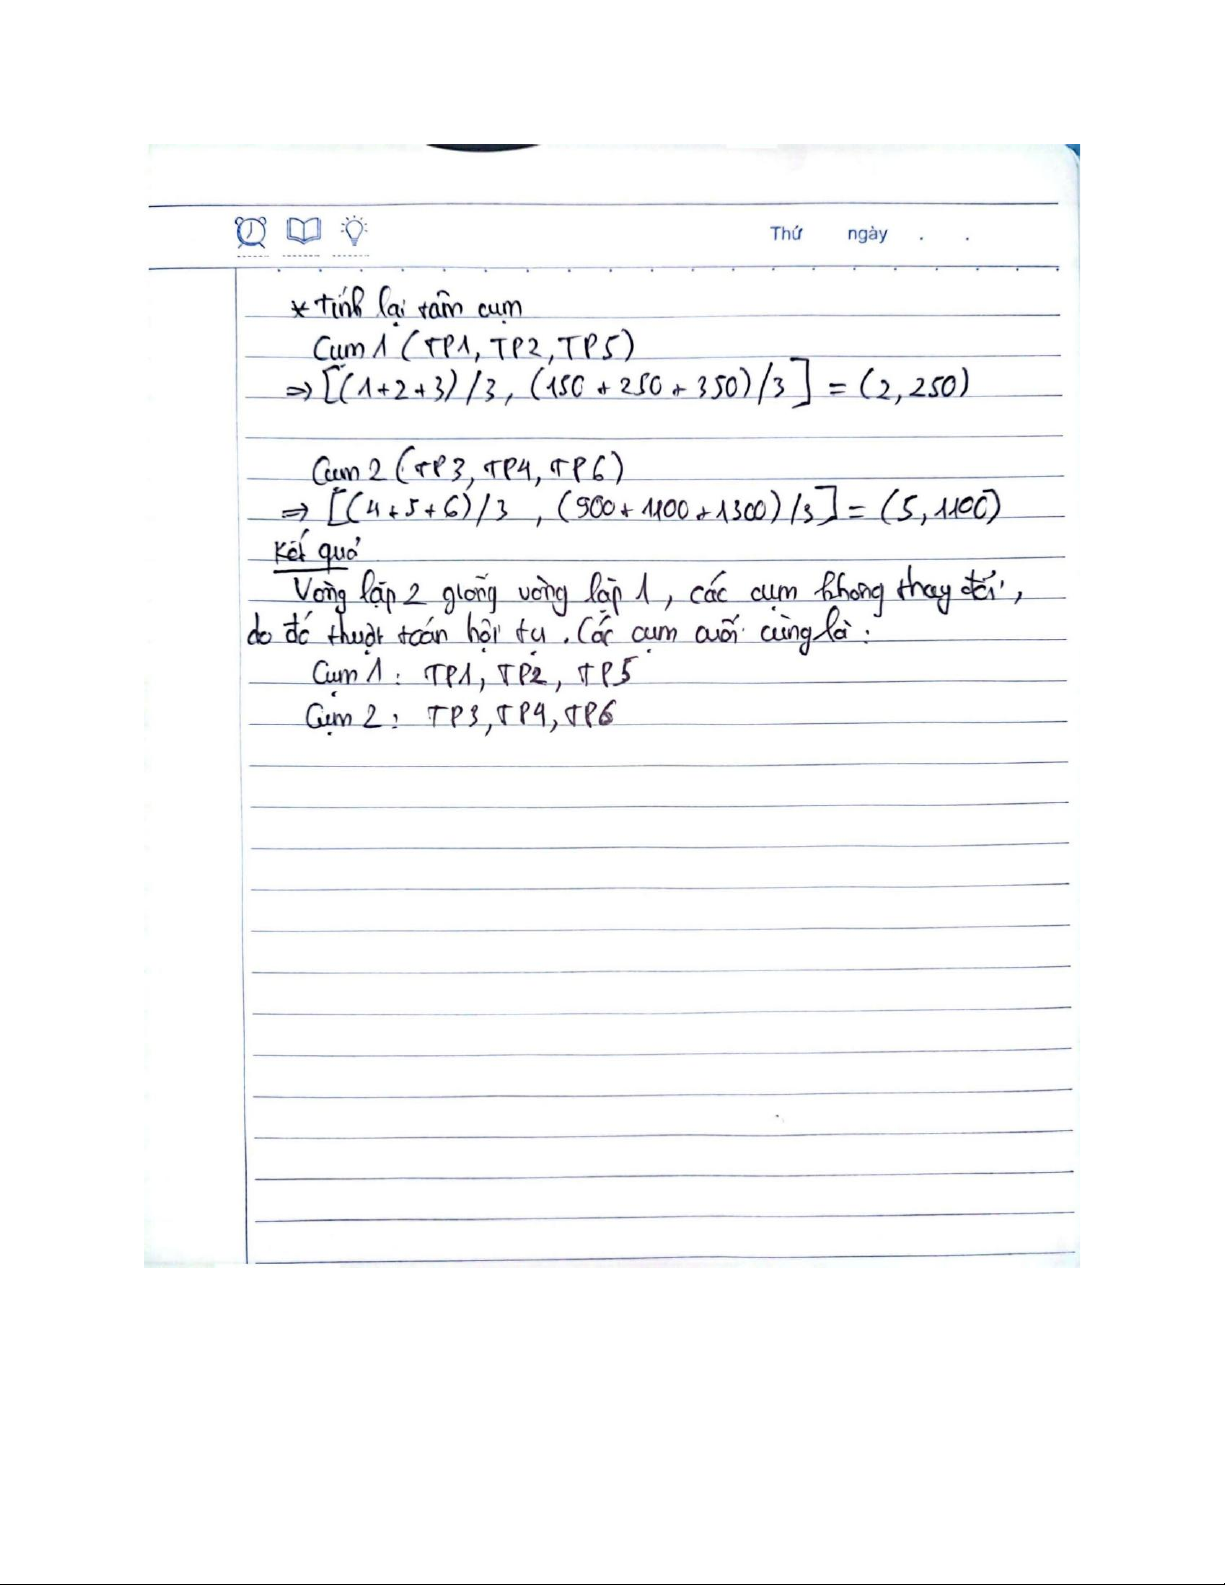 Thứ ngày . .
* Tính lại tâm cụm
Cụm 1 (TP1, TP2, TP5)
⇒ [(1+2+3)/3, (150 + 250 + 350)/3] = (2, 250)
Cụm 2 (TP3, TP4, TP6)
⇒ [(4+5+6)/3 , (900 + 1100 + 1300)/3] = (5, 1100)
Kết quả
Vòng lặp 2 giống vòng lặp 1, các cụm không thay đổi,
do đó thuật toán hội tụ. Các cụm cuối cùng là:
Cụm 1: TP1, TP2, TP5
Cụm 2: TP3, TP4, TP6